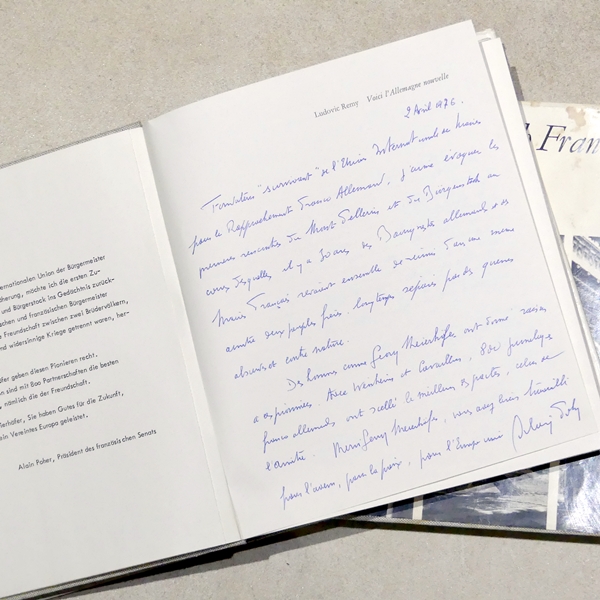 ernationalen Union der Bürgermeister
herung, möchte ich die ersten Zu-
und Bürgerstock ins Gedächtnis zurück-
schen und französischen Bürgermeister
e Freundschaft zwischen zwei Brüdervölkern,
nd widersinnige Kriege getrennt waren, her-
fer geben diesen Pionieren recht.
n sind mit 800 Partnerschaften die besten
, nämlich die der Freundschaft.
ierhofer, Sie haben Gutes für die Zukunft,
ein Vereintes Europa geleistet.
Alain Poher, Präsident des französischen Senats
Ludovic Remy Voici l'Allemagne nouvelle
2 Avril 1976.
"survivant" de l'Union Internationale des Maires
pour le Rapprochement Franco Allemand, j'aime évoquer les
premières rencontres du Mont Pellerin et du Bürgenstock au
cours desquelles il y a 30 ans des Bourgmestres allemands et des
Maires Français
entre deux peuples frères longtemps séparés par des guerres
absurdes et contre nature.
Des hommes comme Georg Meierhofer ont donné raison
à ces pionniers. Avec Wertheim et Cavaillon, 800 jumelages
franco allemands ont scellé le meilleur des pactes, celui de
l'amitié. Merci Georg Meierhofer, vous avez bien travaillé
pour l'avenir, pour la paix, pour l'Europe unie
Fran